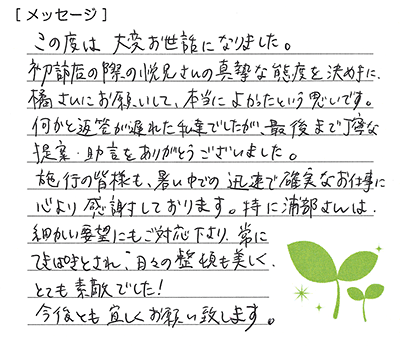 [メッセージ]
この度は 大変お世話になりました。
初訪店の際の悦児さんの真摯な態度を決め手に、
橘さんにお願いして、本当によかったという思いです。
何かと返答が遅れた私達でしたが、最後まで丁寧な
提案・助言をありがとうございました。
施行の皆様も、暑い中での 迅速で確実なお仕事に
心より 感謝しております。特に浦部さんは、
細かい要望にもご対応下さり、常に
てきぱきとされ、日々の整頓も美しく、
とても 素敵でした!
今後とも 宜しくお願い致します。